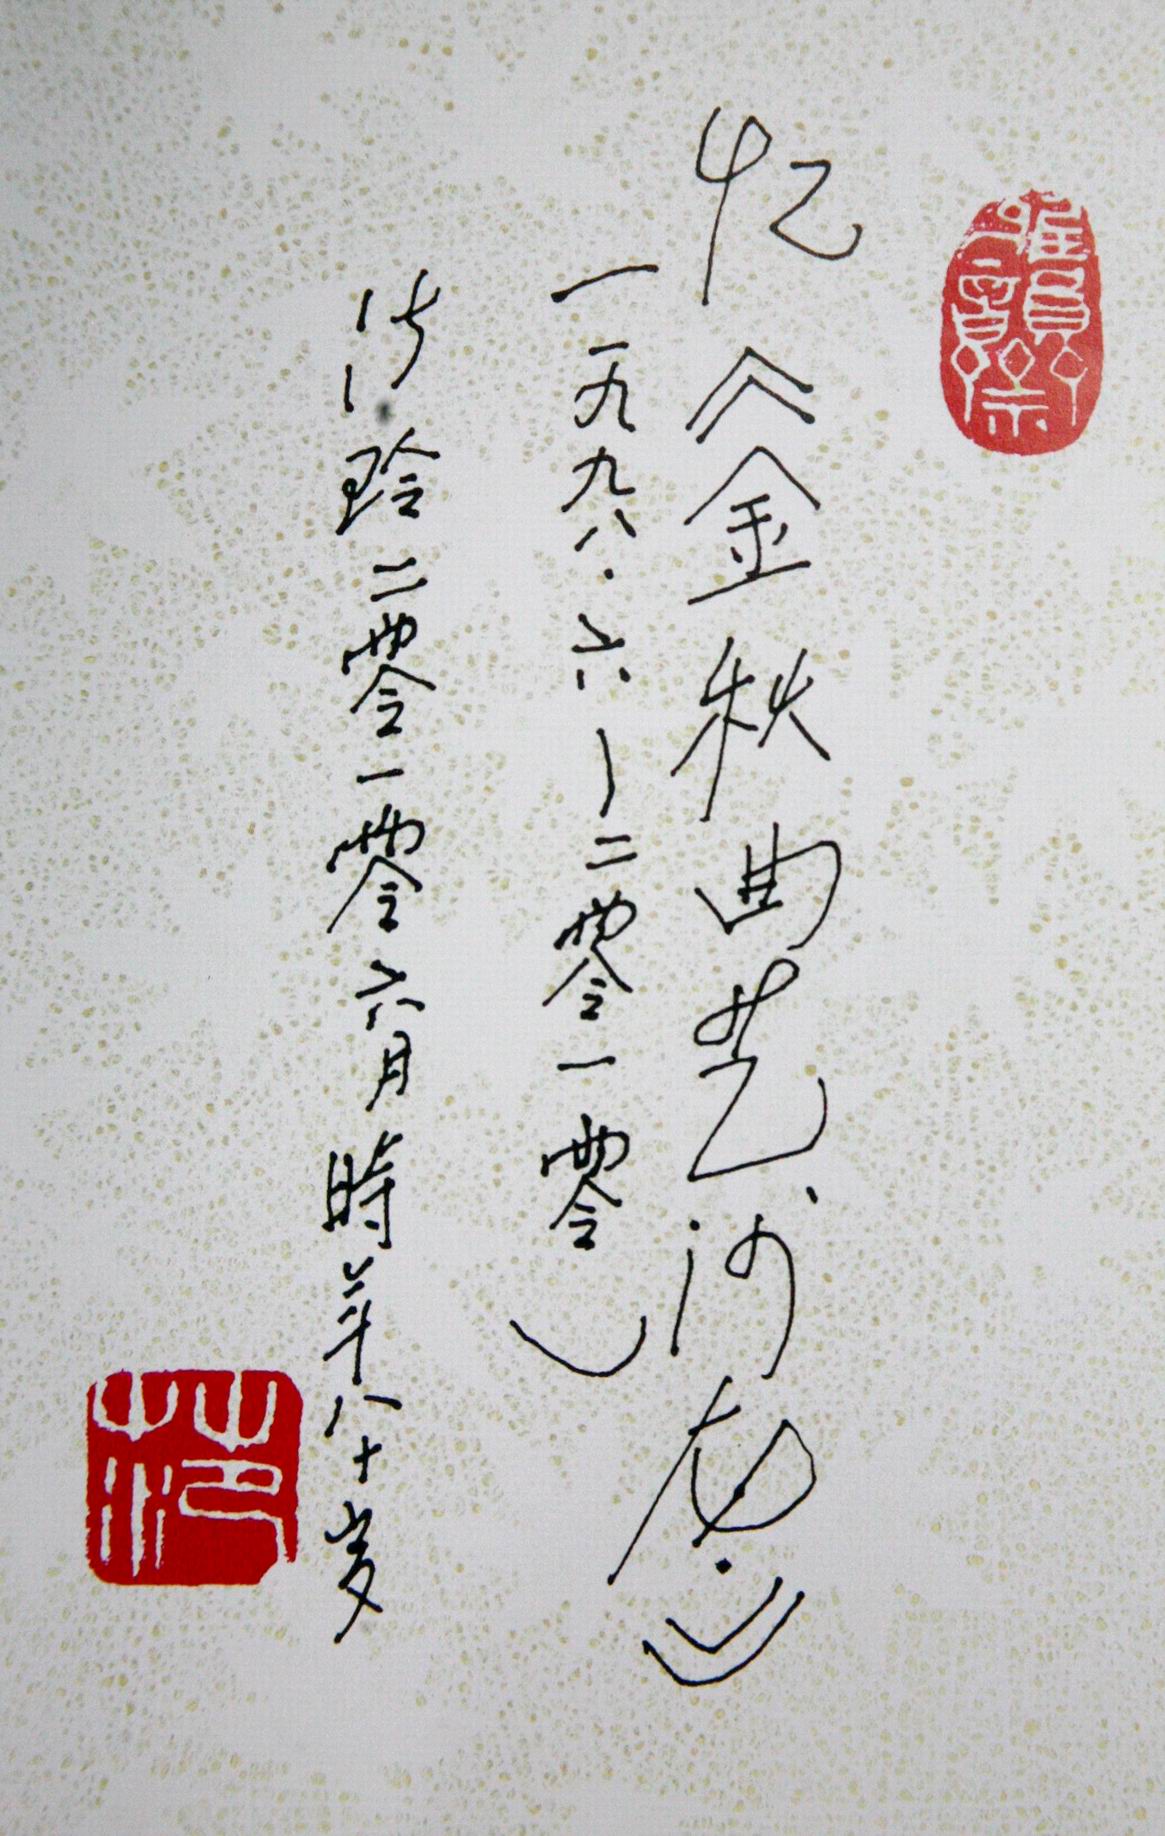 忆《金秋曲艺沙龙》
(一九九八·六—二零一零)
玲 二零一零六月 時年八十岁